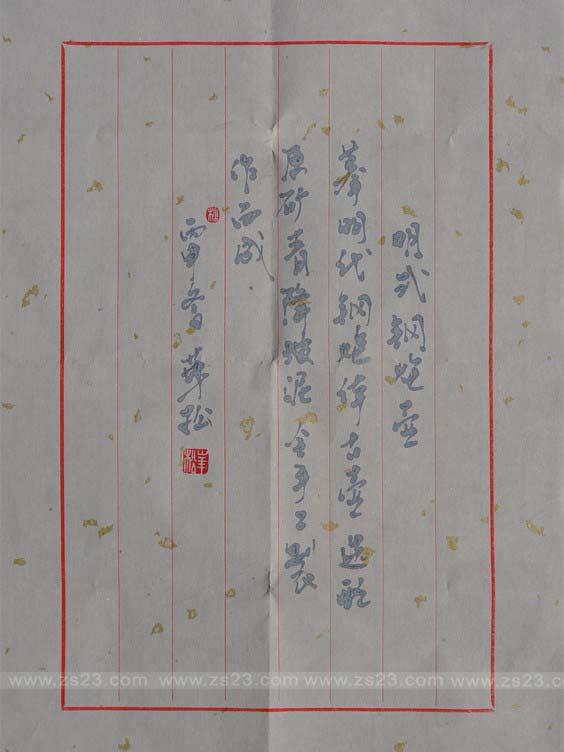 明式钢炮壶
摹明代钢炮传古壶选
原矿青降坡泥全手工製
作而成
丙申冬日 華松
松
www.zs23.com www.zs23.com www.zs23.com www.zs23.com